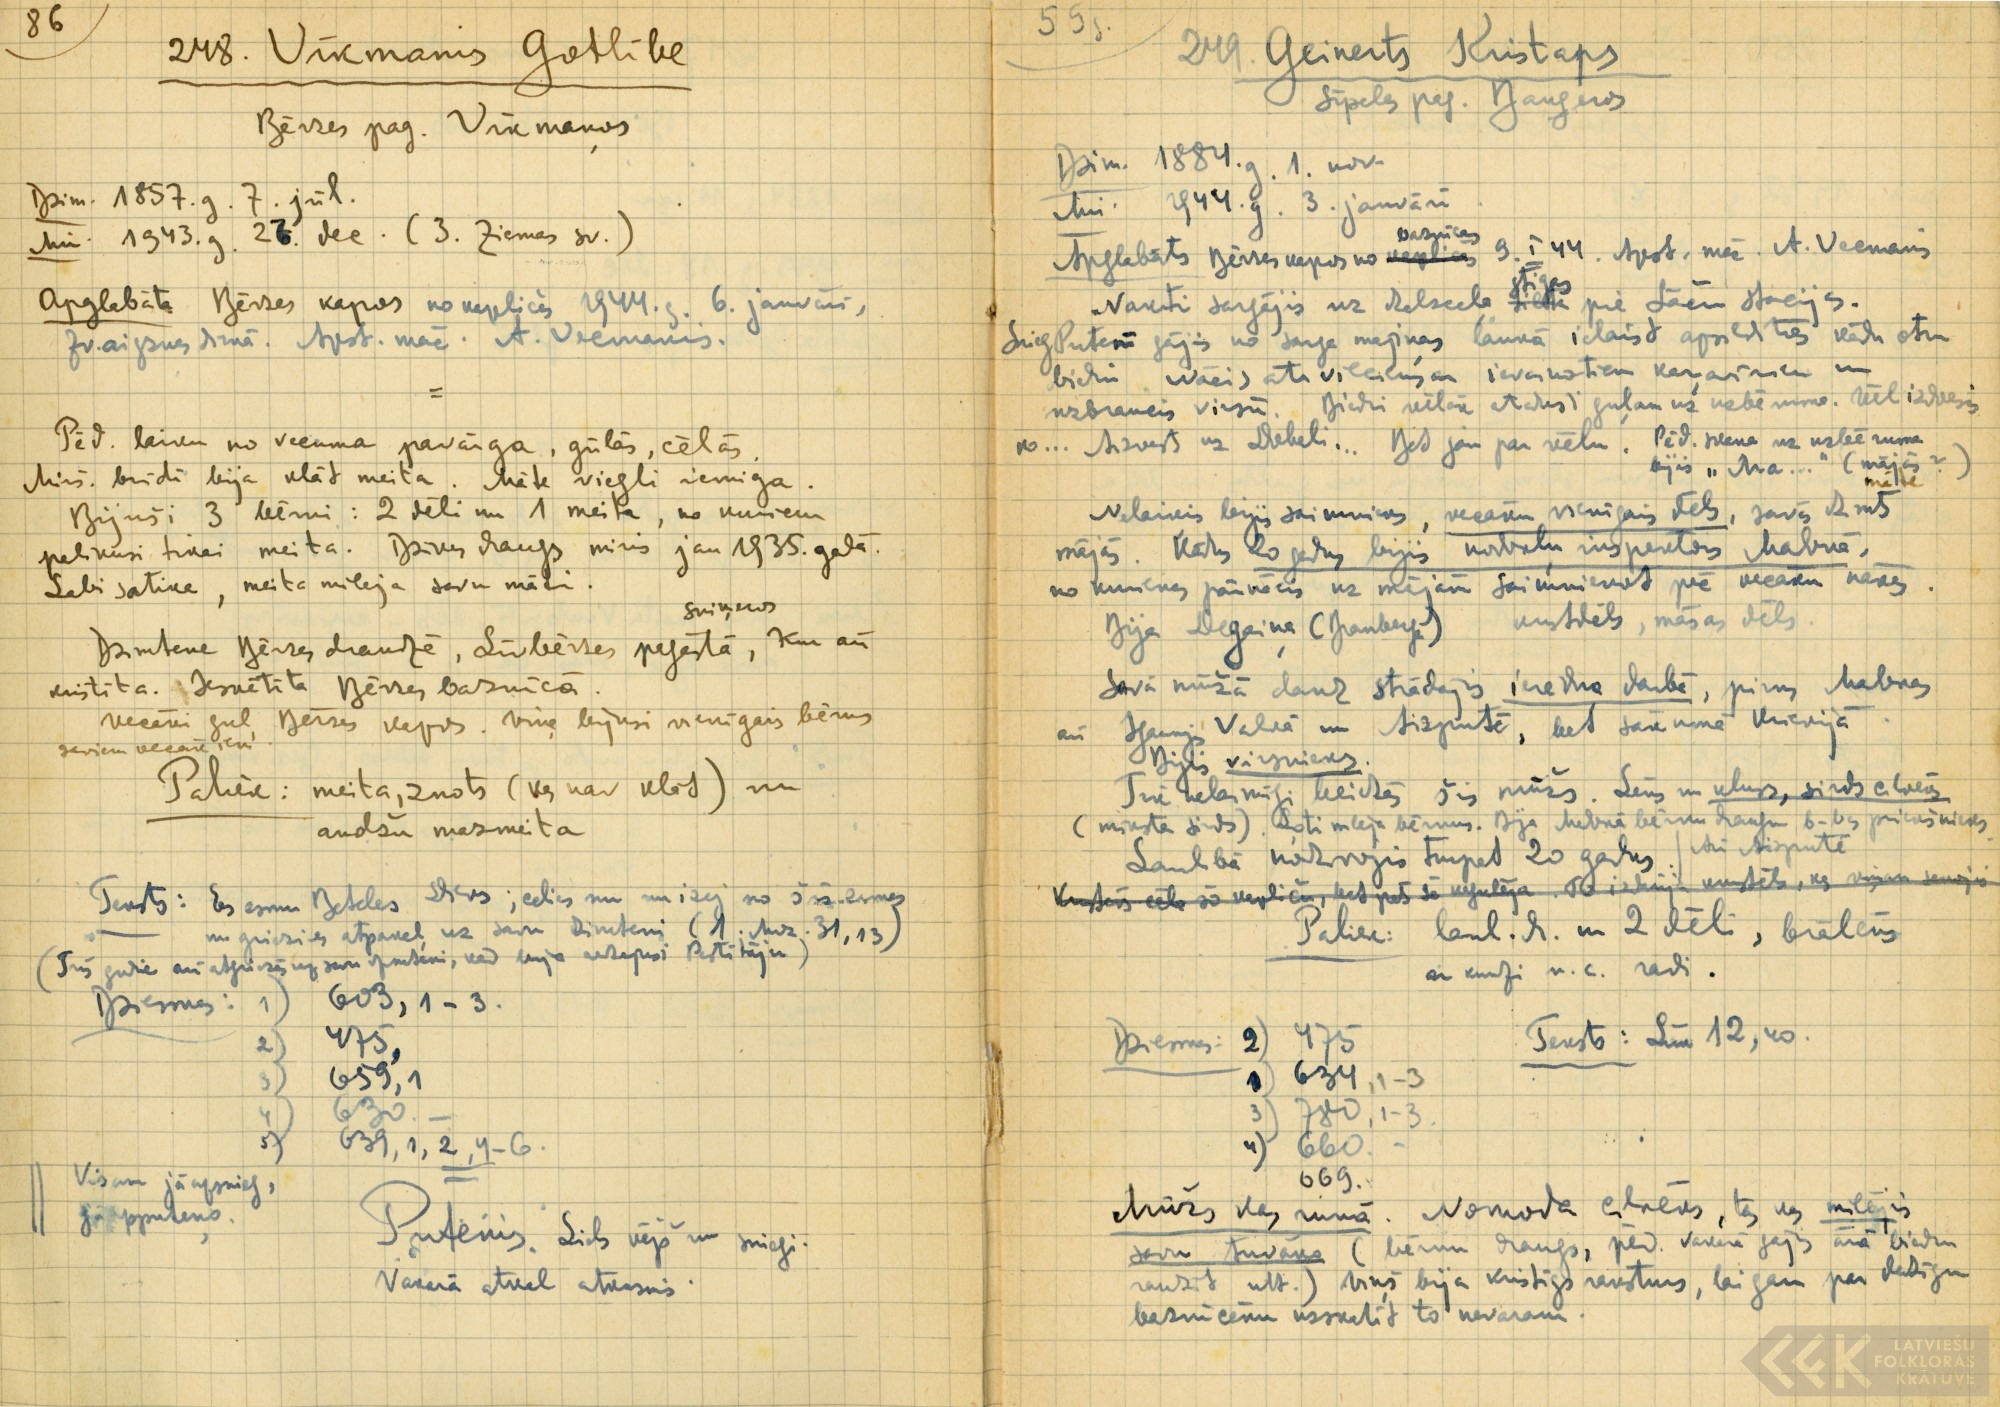 86
248. Vīkmanis Gotlībe
Bērzes pag. Vīkmaņos
Dzim. 1857. g. 7. jūl.
Mir. 1943. g. 26. dec. (3. Ziemas sv.)
Apglabāta Bērzes kapos no kapličas 1944. g. 6. janvārī,
Zv. aigznes dienā. Apst. māc. A. Vecmanis.
=
Pēd. laiku no vecuma pavārga, gūlās, cēlās.
Mirš. brīdī bija klāt meita. Māte viegli iemiga.
Bijuši 3 bērni: 2 dēli un 1 meita, no kuriem
palikusi tikai meita. Dzīves draugs miris jau 1935. gadā.
Labi satika, meita mīlēja savu māti.
Dzimtene Bērzes draudzē, Līvbērzes pagastā, kur arī
kristīta. Iesvētīta Bērzes baznīcā.
Vecāki guļ Bērzes kapos. Viņa bijusi vienīgais bērns
saviem vecākiem.
Paliek: meita, znots (kas nav klāt) un
audžu mazmeita
Teksts: Es esmu Bēteles Dievs; celies nu un izej no šās zemes
un griezies atpakaļ uz savu dzimteni (1. Moz. 31,13)
Dziesmas: 1) 603, 1-3.
2) 475,
3) 659, 1
4) 630. –
5) 639, 1, 2, 4-6.
Visam jāapsnieg,
jāapputeņo.
Putenis. Liels vējš un sniegi.
Vakarā atkal atkusnis.
55g.
249. Geinerts Kristaps
Sīpeles pag. Daugeros
Dzim. 1884. g. 1. nov.
Mir. 1944. g. 3. janvārī
Apglabāts Bērzes kapos no baznīcas 9. I 44. Apst. māc. A. Vecmanis
Naktī sargājis uz dzelzceļa stigas pie Lāču stacijas.
Sniegputenī gājis no sarga mājiņas laukā ielaist apsildīties kādu otru
biedri. Nācis ātr. vilciens ar ievainotiem kareivjiem un
uzbraucis virsū. Biedri vēlāk atraduši guļam uz uzbēruma. Vēl izdvesis
no... Aizvests uz Dobeli... Bet jau par vēlu. Pēd. skaņa uz uzbēruma
bijis „Ma..." (mājās?)
māte
Nelaiķis bijis saimnieks, vecāku vienīgais dēls, savās dzimt.
mājās. Kādus 20 gadus bijis nodokļu inspektors Madonā,
no kurienes pārnācis uz mājām saimniekot pēc vecāku nāves.
Bija Degaiņa (Branberga) krustdēls, māsas dēls.
Savā mūžā daudz strādājis ierēdņa darbā, pirms Madonas
arī Igauņu Valkā un Aizputē, bet sākumā Krievijā.
Bijis virsnieks.
Tik nelaimīgi beidzās šis mūžs. Lēns un kluss, sirds cilvēks
(mīksta sirds). Ļoti mīlēja bērnus. Bija Madonā bērnu draugu b-bas priekšnieks
Arī Aizputē
Laulībā nodzīvojis turpat 20 gadus.
Paliek: laul. dr. un 2 dēli, brālēns
ar kundzi u. c. radi.
Dziesmas: 2) 475
1) 634, 1-3
3) 780, 1-3.
4) 660. –
669.
Teksts: Lūk 12, 40.
Mūžs kas runā. Nomoda cilvēks, tas kas mīlējis
savu tuvāko (bērnu draugs, pēd. vakarā gājis ārā biedru
raudzīt utt.) Viņš bija kristīgs raksturs, lai gan par dedzīgu
baznīcēnu uzskatīt to nevaram.
LATVIEŠU
FOLKLORAS
KRĀTUVE